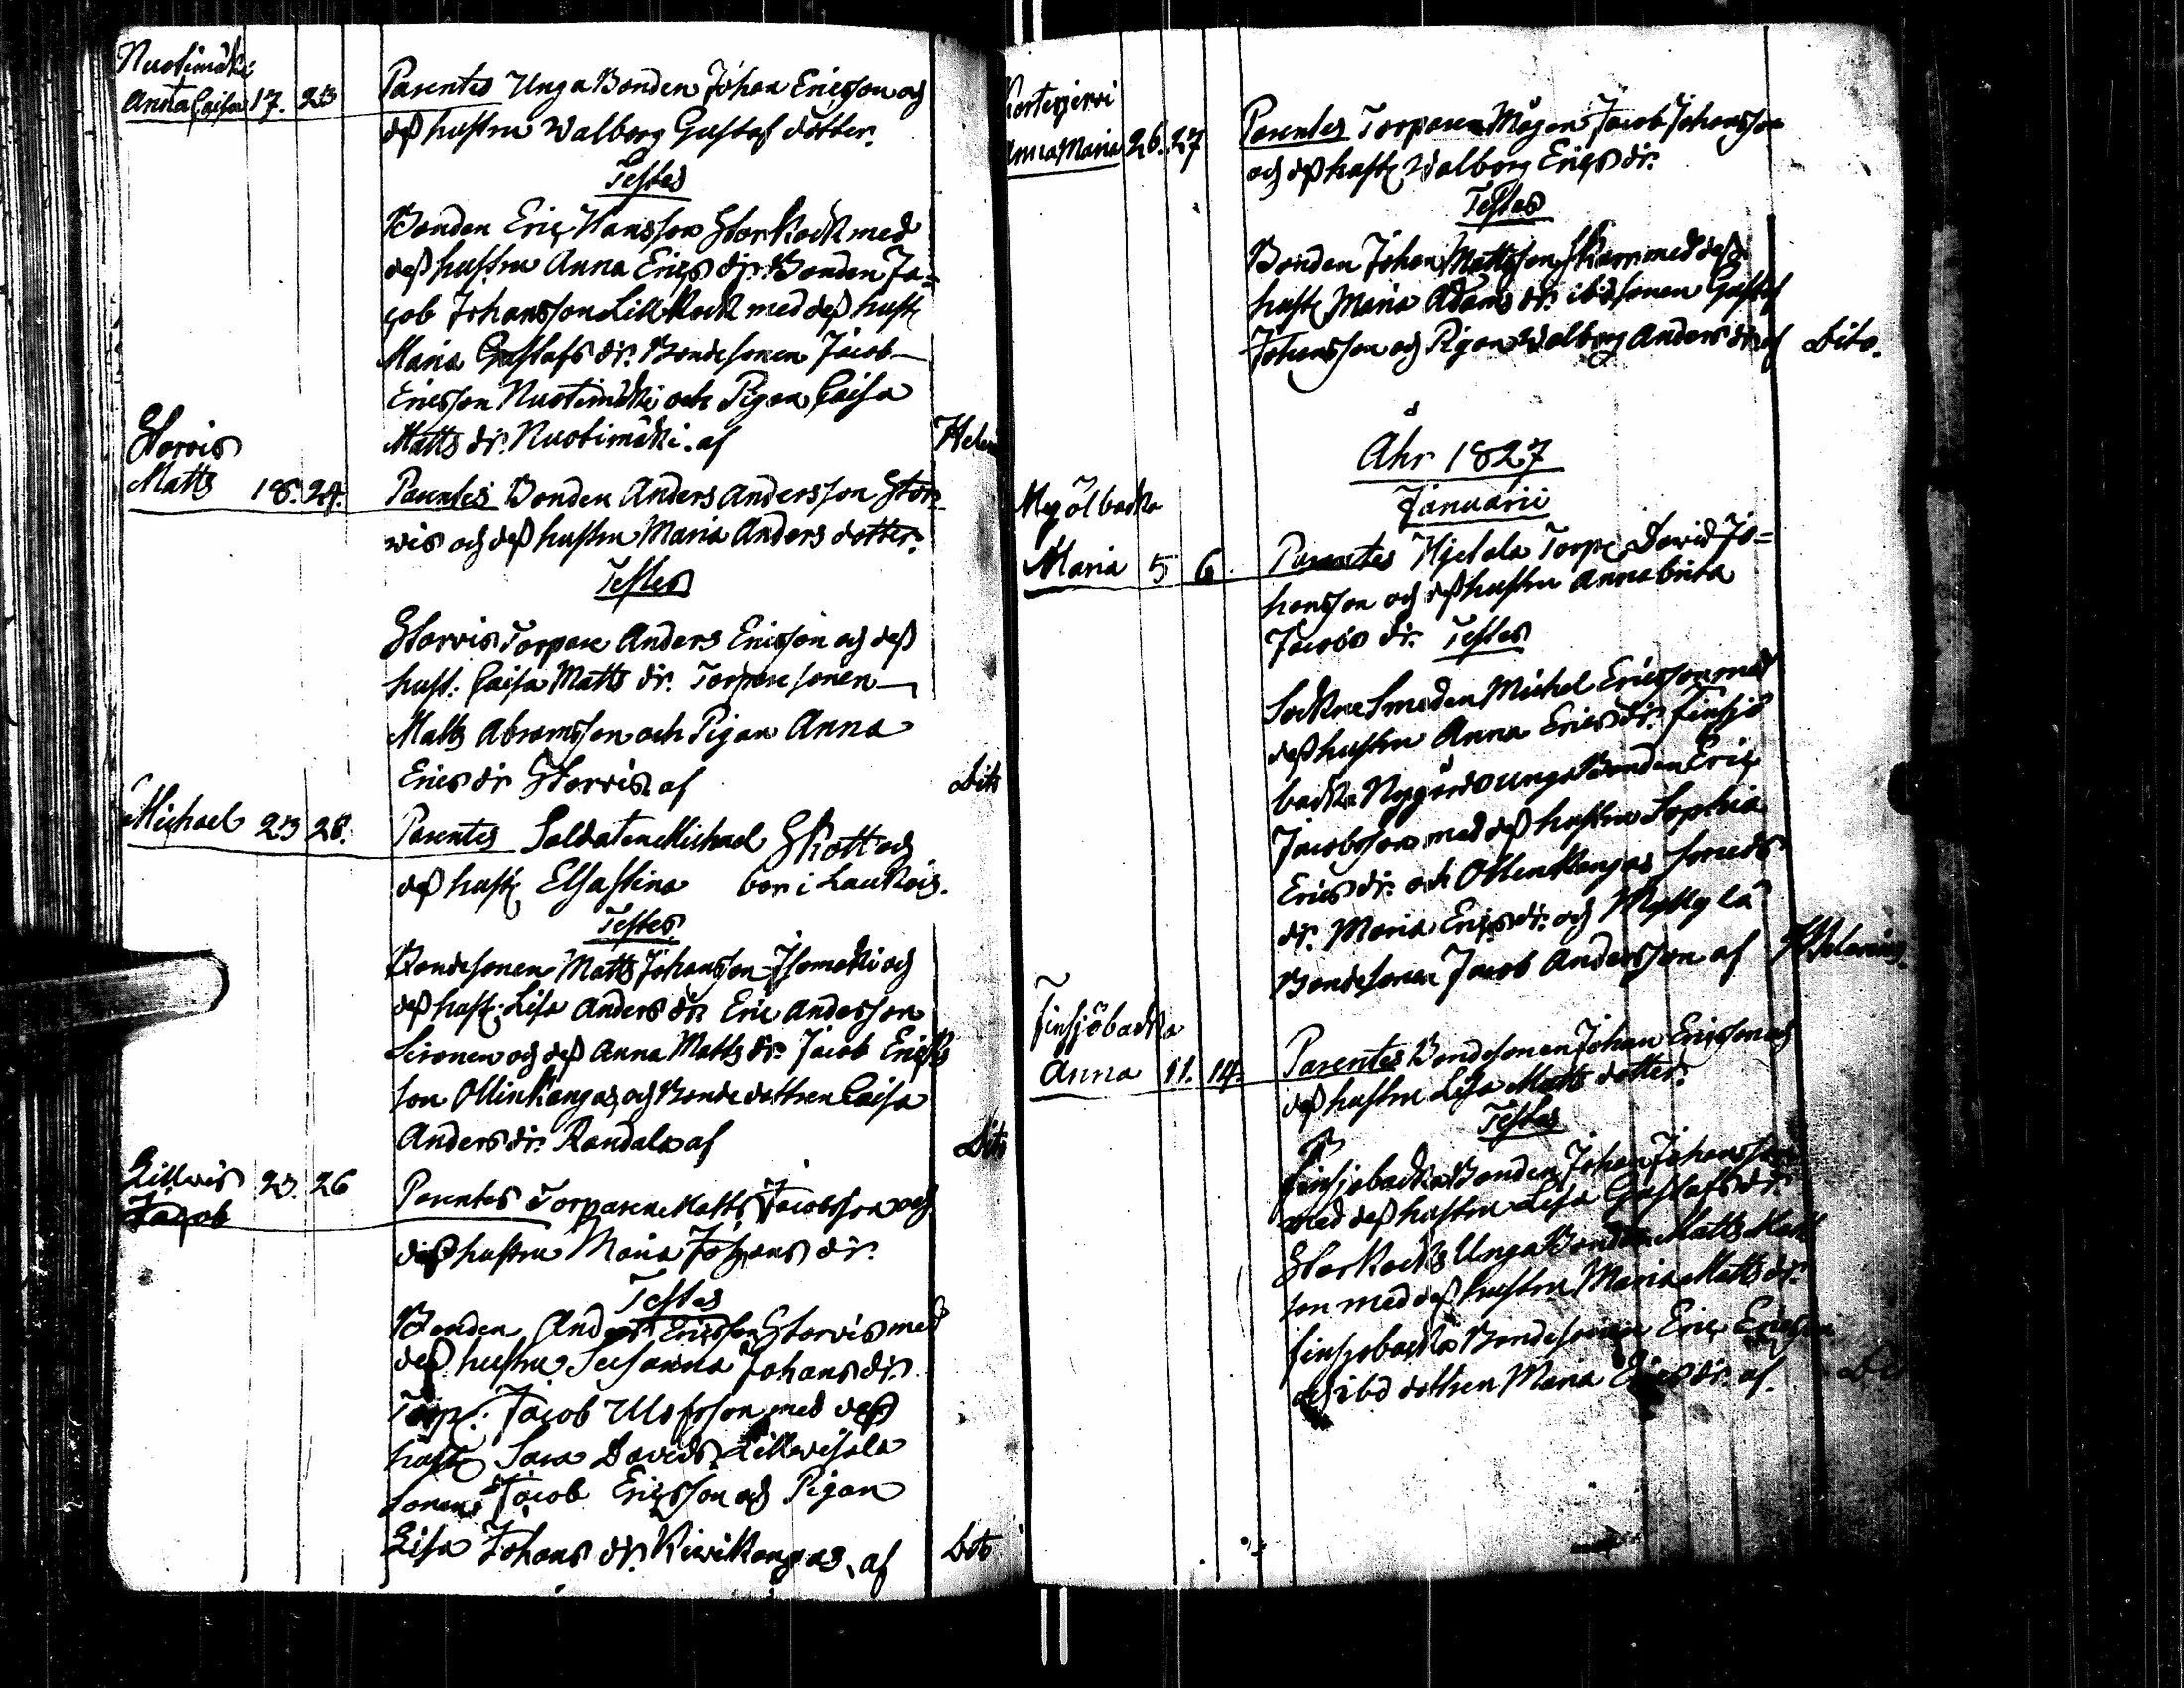 Nuotimäki
Anna Caisa 17. 23 Parentes Unga Bonden Johan Ericsson och
deß hustru Walborg Gustaf dotter.
Testes
Bonden Eric Hansson Storkock med
deß hustru Anna Erics dr. Bonden Ja=
cob Johansson Lillkock med deß hust
Maria Gustafs dr. Bondesonen Jacob
Ericsson Nuotimäki och Pigan Caisa
Matts dr. Nuotimäki. af
Storvis
Matts 18. 24. Parentes Bonden Anders Andersson Stor=
wis och deß hustru Maria Anders dotter.
Testes
Storvis Torpare Anders Ericsson och deß
hust: Caisa Matts dr. Torpare sonen
Matts Abramsson och Pigan Anna
Erics dr Storvis af Dito
Michael 23 28. Parentes Soldaten Michael Skott och
deß hust Elsa Stina bor i Laukois.
Testes
Bondesonen Matts Johansson Isomäki och
deß hust. Lisa Anders dr. Eric Andersson
Sironen och deß Anna Matts dr. Jacob Erics
son Ollinkangas och Bonde dottren Caisa
Anders dr. Randala af Dito
Lillwis 23. 26 Parentes Torparen Matts Jacobsson och
Jacob
deß hustru Maria Johans dr.
Testes
Bonden Anders Ericsson Storvis med
deß hustru Susanna Johans dr.
Torp: Jacob Ulofsson med deß
hust Sara Davids Lillwis ala
sonen Jacob Ericsson och Pigan
Lisa Johans dr. Kiwikangas. af Dito
Kortesjerwi
Anna Maria 26. 27 Parentes Torparen Mågen Jacob Johansson
och deß hust Walborg Erics dr.
Testes
Bonden Johan Mattsson Skarp med deß
hust Maria Adams dr. ibd sonen Gustaf
Johansson och Pigan Walborg Anders dr af Dito.
Åhr 1827
Januarii
Mjölbacka
Maria 5 6. Parentes Hjelala Torp David Jo=
hansson och deß hustru Anna Brita
Jacobs dr. Testes
Sockne Smeden Michel Ericsson med
deß hustru Anna Erics dr. Finsjö
backa Nygårds unga Bonden Eric
Jacobsson med deß hustru Sophia
Erics dr. och Ollinkangas smeds
dr. Maria Erics dr. och Myllylä
Bondesonen Jacob Andersson af Helenius.
Finsjöbacka
Anna 11. 14. Parentes Bondesonen Johan Ericsson och
deß hustru Lisa Matts dotter.
Testes
Finsjobacka Bonden Johan Johansson
med deß hustru Lisa Gustafs dr.
Storkocks Unga Bonden Matts Matts
son med deß hustru Maria Matts dr.
Finsjobacka Bondesonen Eric Ericsson
och ibd dottren Maria Erics dr. af